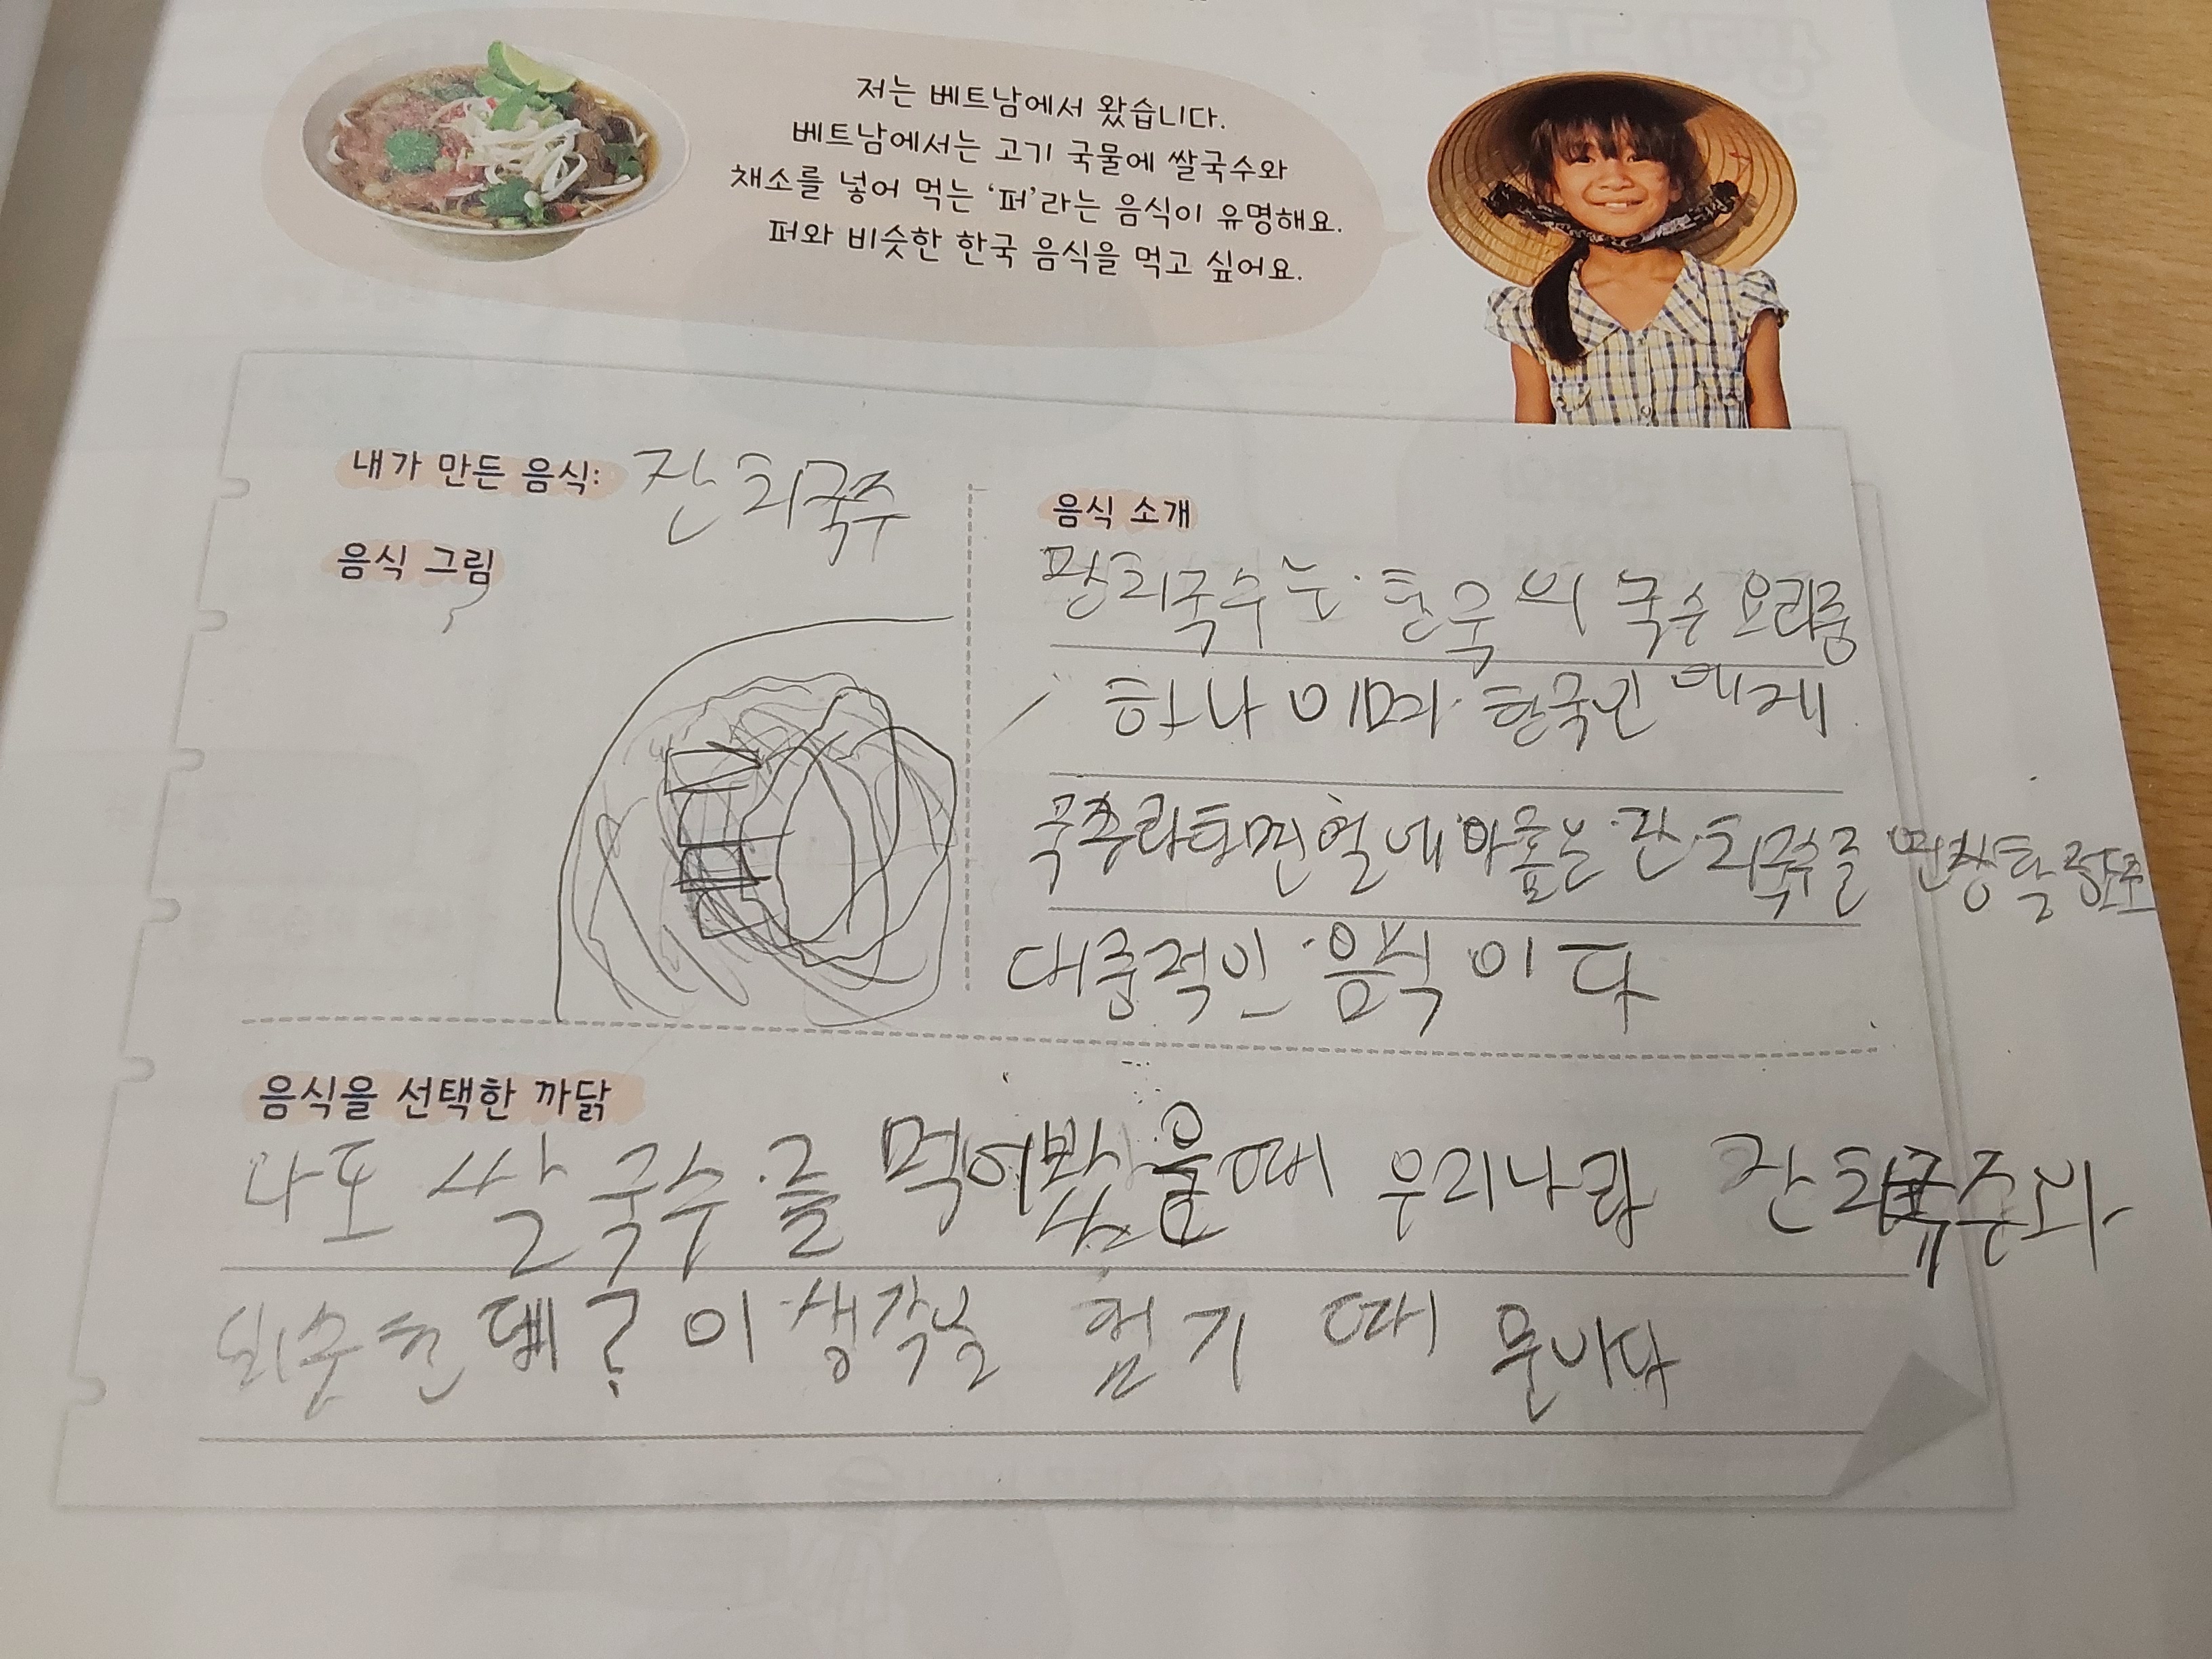 저는 베트남에서 왔습니다.
베트남에서는 고기 국물에 쌀국수와
채소를 넣어 먹는 '퍼'라는 음식이 유명해요.
퍼와 비슷한 한국 음식을 먹고 싶어요.
내가 만든 음식: 잔치국수
음식 그림
음식 소개
잔치국수는 한국의 국수 요리중
하나이며 한국인에게
국수라하면 열에 아홉은 잔치국수를
대중적인 음식이다
음식을 선택한 까닭
나도 쌀국수를 먹어봤을때 우리나라 잔치국수와
비슷한데? 이 생각을 했기 때문이다